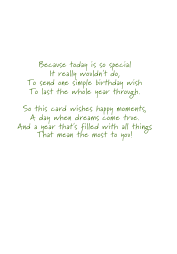 Because today is so special
It really wouldn't do,
To send one simple birthday wish
To last the whole year through.
So this card wishes happy moments,
A day when dreams come true.
And a year that's filled with all things
That mean the most to you!